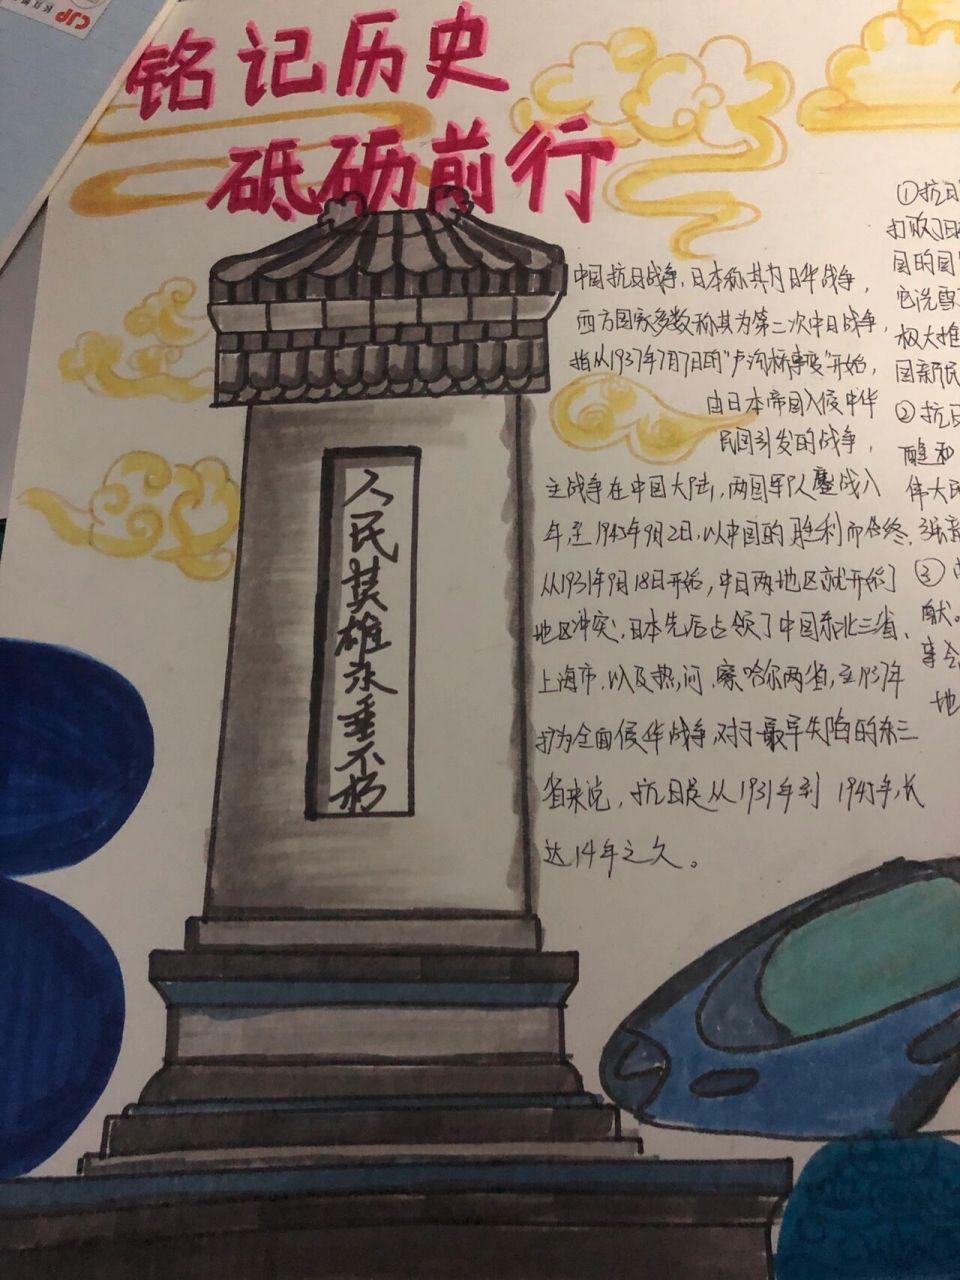 铭记历史
砥砺前行
人民英雄永垂不朽
中国抗日战争,日本称其为日华战争,
西方国家多数称其为第二次中日战争,
指从1937年7月7日的"卢沟桥事变"开始,
由日本帝国入侵中华
民国引发的战争,
主战争在中国大陆,两国军队鏖战八
年,至1945年9月2日,以中国的胜利而告终.
从1931年9月18日开始,中日两地区就开始了
地区冲突,日本先后占领了中国东北三省、
上海市,以及热,河,察哈尔两省,至1937年
扩为全面侵华战争,对于最早失陷的东三
省来说,抗日是从1931年到1945年,长
达14年之久。
①抗日
打败了日
国的国
它洗雪
极大推
国新民
②抗日
醒和
伟大民
③
献。
地